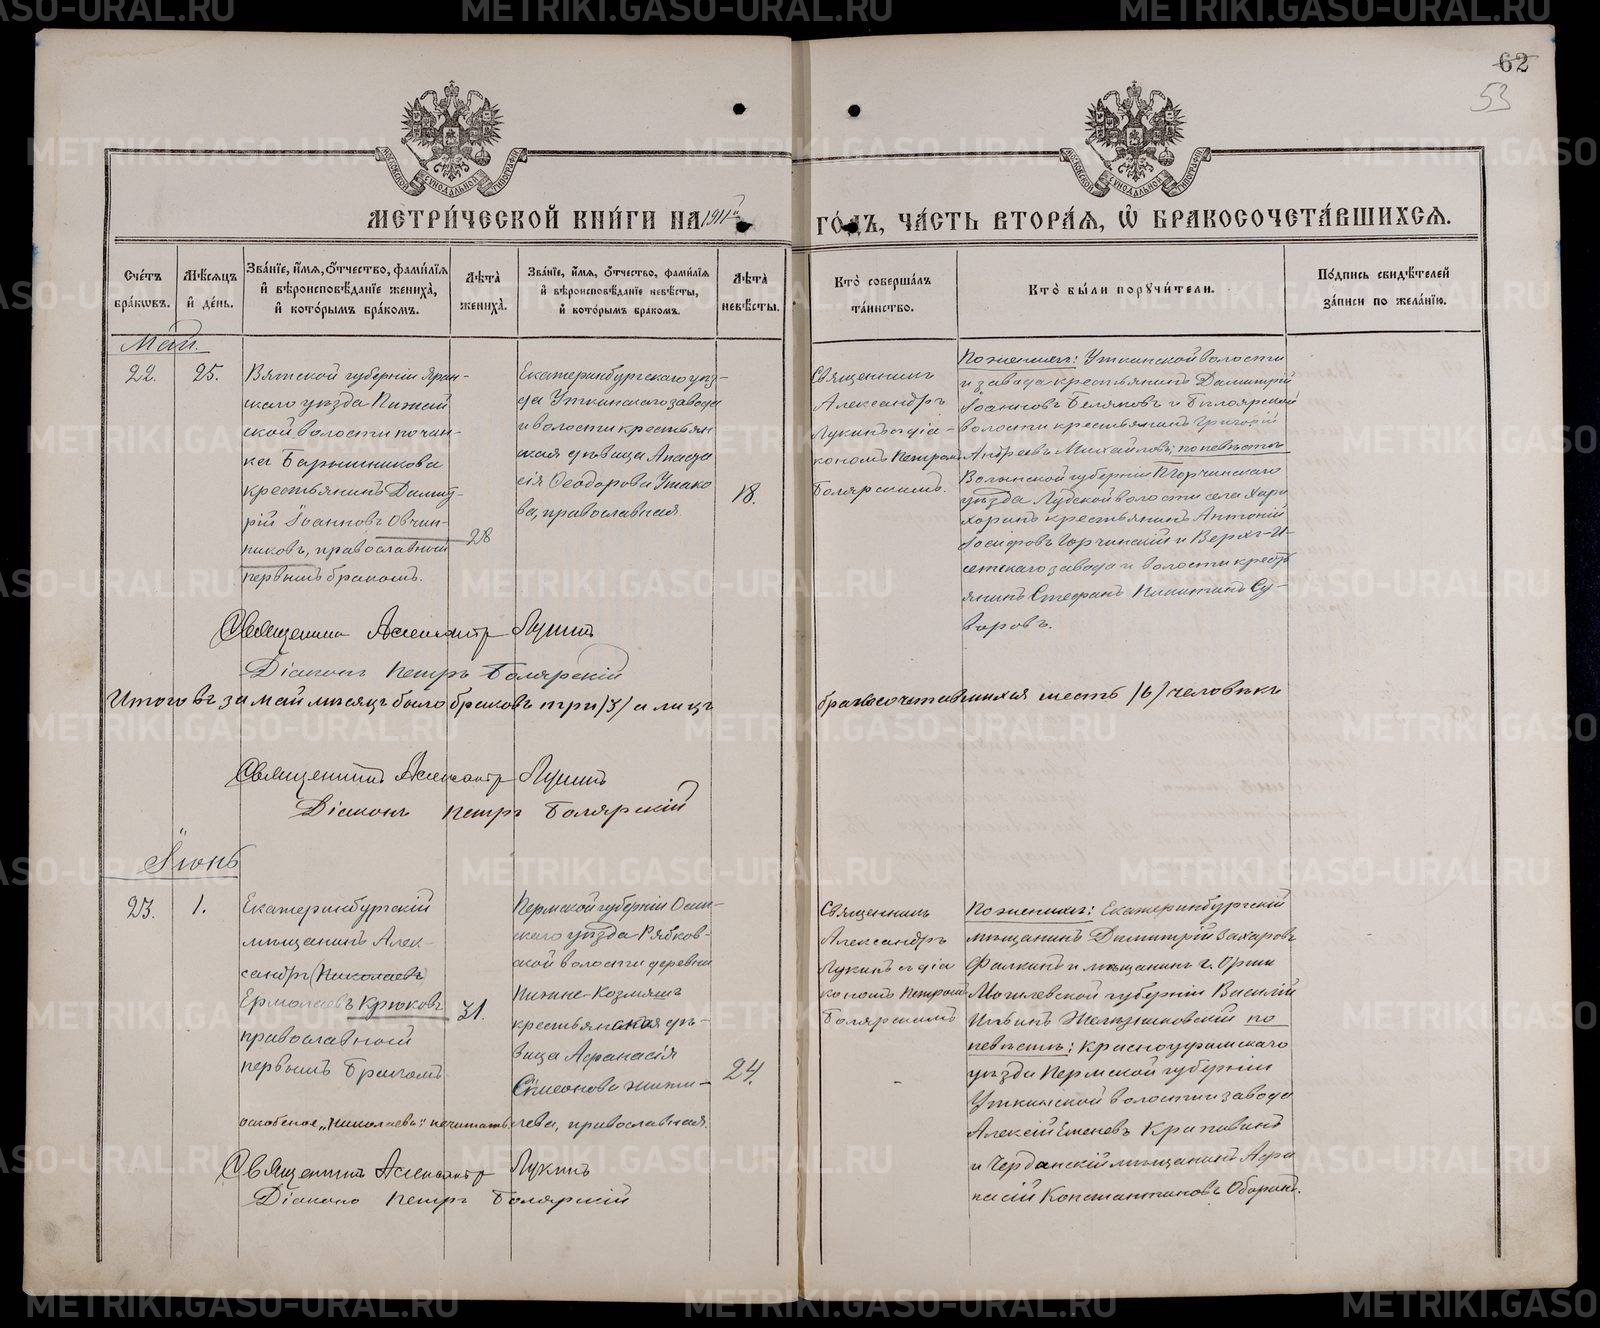 62
53
МЕТРИ́ЧЕСКОЙ КНИ́ГИ НА 1911й ГО́ДЪ, ЧА́СТЬ ВТОРА́Я, Ѡ҆ БРАКОСОЧЕТА́ВШИХСЯ.
Сче́тъ бра́ковъ.
Мѣ́сяцъ и҆ де́нь.
Зва́нїе, и҆́мя, ѻ҆́тчество, фами́лїя и҆ вѣроисповѣ́данїе жениха̀, и҆ кото́рымъ бра́комъ.
Лѣ́та жениха̀.
Зва́нїе, и҆́мя, ѻ҆́тчество, фами́лїя и҆ вѣроисповѣ́данїе невѣ́сты, и҆ кото́рымъ бракомъ.
Лѣ́та невѣ́сты.
Кто̀ соверша́лъ та́инство.
Кто̀ бы́ли порꙋчи́тели.
По́дпись свидѣ́телей за́писи по жела́нїю.
Май.
22.
25.
Вятской губерніи Яран-
скаго уѣзда Пижан
ской волости почин-
ка Барышникова
крестьянинъ Димит
рій Іоанновъ Овчин-
никовъ, православный
первымъ бракомъ.
28
Екатеринбургскаго уѣз-
да Уткинскаго завода
и волости крестьян
ская дѣвица Анаста
сія Ѳеодорова Ушако
ва, православная
18.
Священникъ
Александръ
Лукинъ съ діа-
кономъ Петромъ
Болярскимъ.
По женихѣ: Уткинской волости
и завода крестьянинъ Димитрій
Іоанновъ Беляковъ и Бѣлоярской
волости крестьянинъ Григорій
Андреевъ Михайловъ; по невѣстѣ
Волынской губерніи
уѣзда Лудской волости села
крестьянинъ Антоній
Іосифовъ Горчинскій и Верхъ-И-
сетскаго завода и волости кресть
янинъ Стефанъ Никитинъ Су-
воровъ.
Священникъ Александръ Лукинъ
Діаконъ Петръ Болярскій
Итого въ за май мѣсяцъ было браковъ три /3/ а лицъ бракосочетавшихся шесть /6/ человѣкъ
Священникъ Александръ Лукинъ
Діаконъ Петръ Болярскій
Іюнь
23.
1.
Екатеринбургскій
мѣщанинъ Алек-
сандръ (Николаевъ)
Ермолаевъ Крюковъ
православный
первымъ бракомъ.
31.
Пермской губерніи Осин-
скаго уѣзда Рябков-
ской волости деревни
Нижне-Козмяшъ
крестьянская дѣ-
вица Аѳанасія
Симеонова Жити-
лева, православная.
24.
"Николаевъ" нечитать
Священникъ
Александръ
Лукинъ съ діа
кономъ Петромъ
Болярскимъ
По женихѣ: Екатеринбургскій
мѣщанинъ Димитрій Захаровъ
Фалкинъ и мѣщанинъ г. Орши
Могилевской губерніи Василій
Ильинъ Желѣзняковскій по
невѣстѣ: Красноуфимскаго
уѣзда Пермской губерніи
Уткинской волости и завода
Алексій Крапивинъ
и Чердынскій мѣщанинъ Аѳа
насій Константиновъ Оборинъ.
Священникъ Александръ Лукинъ
Діаконъ Петръ Болярскій
METRIKI.GASO-URAL.RU